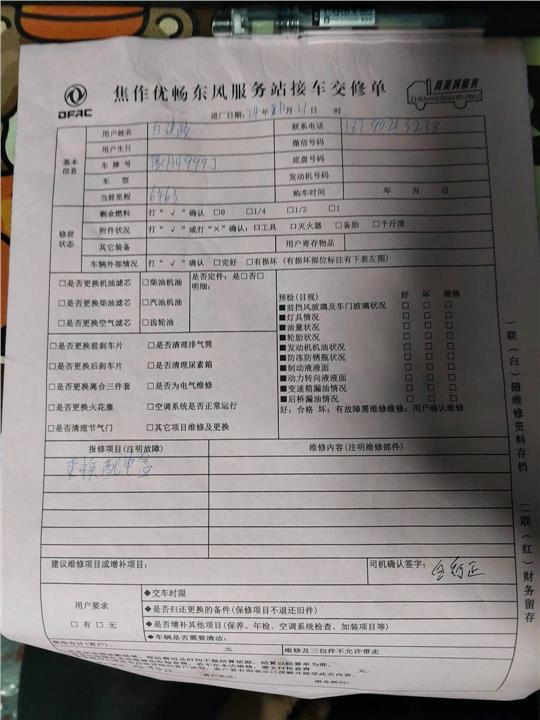 DFAC
焦作优畅东风服务站接车交修单
真美满服务
ZHENMEIMANFUWU
进厂日期: 年 月 21 日 时
基本信息
用户姓名
联系电话
用户生日 微信号码
车牌号 底盘号码
车型 发动机号码
当前里程 6463 购车时间 年 月 日
修前状态
剩余燃料 打“√”确认 □0 □1/4 □1/2 □1
附件状况 打“√”或打“×”确认:□工具 □灭火器 □备胎 □千斤顶
其它装备 用户寄存物品
车辆外部情况 打“√”确认 □完好 □有损坏(有损坏部位标注有下表左图)
□是否更换机油滤芯 □柴油机油
□是否更换柴油滤芯 □汽油机油
□是否更换空气滤芯 □齿轮油
是否定件:是□否□
明细:
□是否更换前刹车片 □是否清理排气筒
□是否更换后刹车片 □是否清理尿素箱
□是否更换离合三件套 □是否为电气维修
□是否更换火花塞 □空调系统是否正常运行
□是否清理节气门 □其它项目维修及更换
预检(目视) 好 坏 维修
■前挡风玻璃及车门玻璃状况 □ □ □
■灯具情况 □ □ □
■油量状况 □ □ □
■轮胎状况 □ □ □
■发动机机油状况 □ □ □
■防冻防锈瓶状况 □ □ □
■制动液液面 □ □ □
■动力转向液液面 □ □ □
■变速箱漏油情况 □ □ □
■后桥漏油情况 □ □ □
好:合格 坏:有故障需维修维修:用户确认维修
报修项目(注明故障) 维修内容(注明维修部件)
更换
建议维修项目或增补项目: 司机确认签字:
用户要求
□有 □无
◆交车时限
◆是否归还更换的备件(保修项目不退还旧件)
◆是否增补其他项目(保养、年检、空调系统检查、加装项目等)
◆车辆是否需要清洁:
费用合计(客户): 元 维修及三包件不允许带走
元。
客户电话: 服务顾问:
一联(白)随维修资料存档
二联(红)财务留存